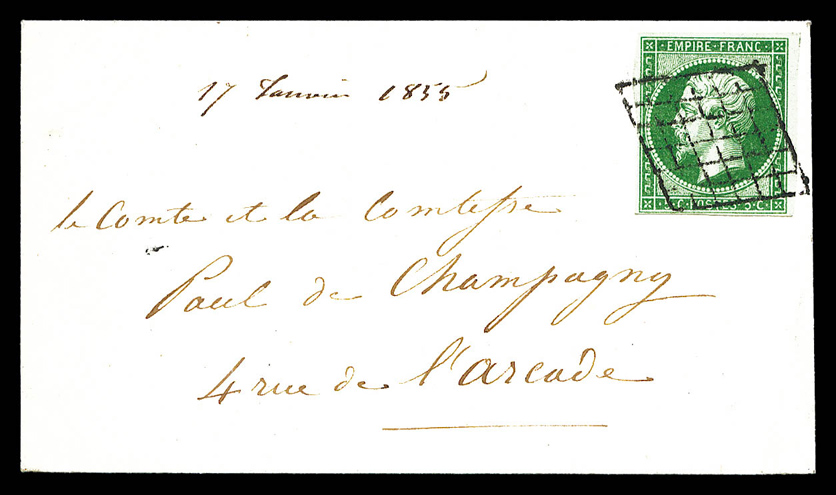 EMPIRE FRANC.
17 Janvier 1855
5.C. POSTES 5.C.
le Comte et la Comtesse
Paul de Champagny
4 rue de l'arcade